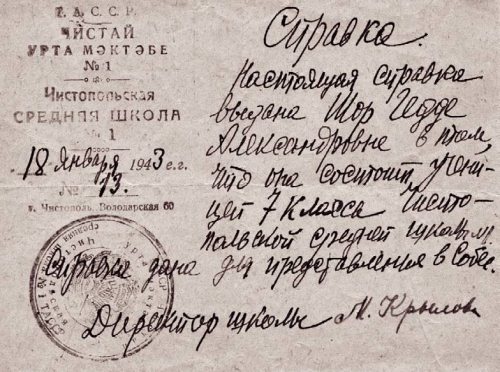 Т. А. С. С. Р.
ЧИСТАЙ
УРТА МӘКТӘБЕ
№ 1
Чистопольская
СРЕДНЯЯ ШКОЛА
№ 1
18 января 1943 г.
№ 13.
г. Чистополь, Володарская 60
Справка.
Настоящая справка
выдана Шор Гедде
Александровне в том,
что она состоит учени-
цей 7 класса Чисто-
польской средней школы
Справка дана для представления в
Директор школы М. Крылов